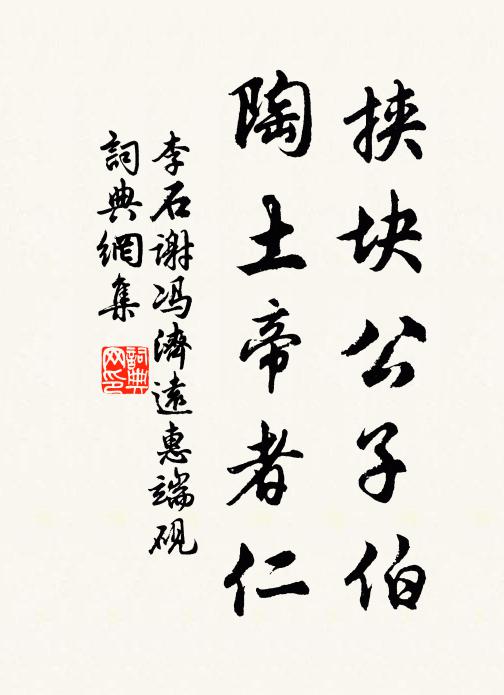 挟块公子伯
陶土帝者仁
李石谢冯濟遠惠端硯
詞典網集
詞典网印